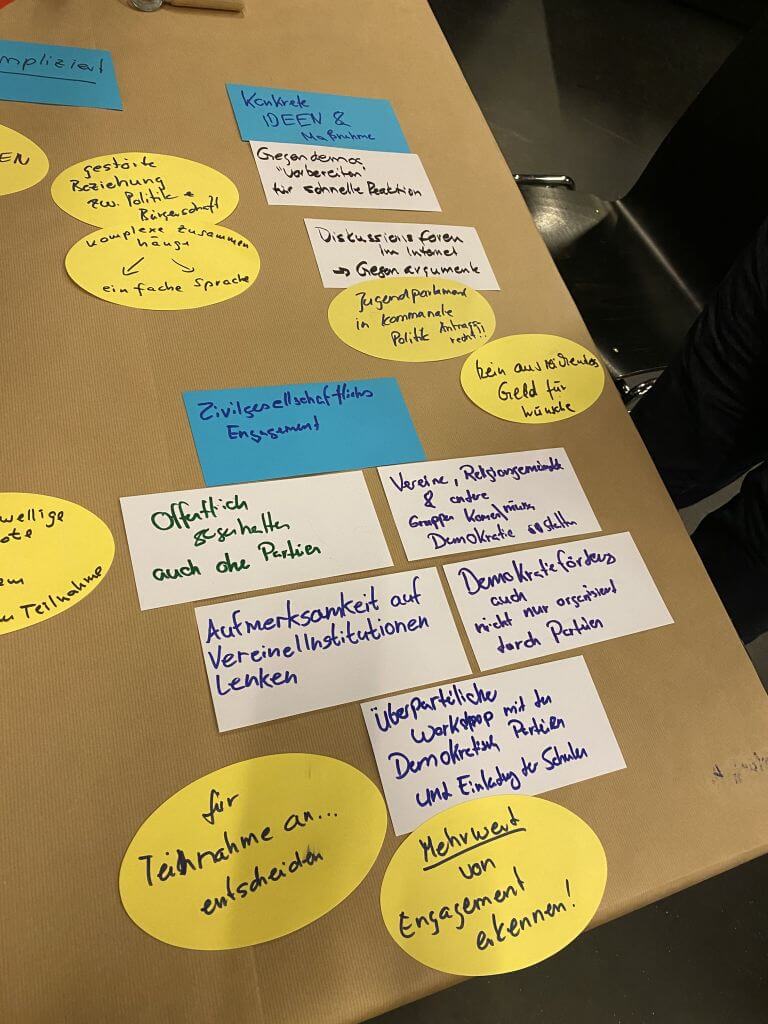 mpliziert
EN
gestörte
Beziehung
zw. Politik +
Bürgerschaft
komplexe Zusammen
hänge
einfache Sprache
Konkrete
IDEEN &
Maßnahme
Gegendemos
"vorbereiten"
für schnelle Reaktion
Diskussions foren
im Internet
→ Gegen argumente
Jugendparlament
in kommunale
Politik Antrags
recht!!
kein ausreichendes
Geld für
Wünsche
Zivilgesellschaftliches
Engagement
Öffentlich
gegenhalten
auch ohne Parteien
Vereine, Religionsgemeinde
& andere
Gruppen können/müssen
Demokratie
Aufmerksamkeit auf
Vereine/Institutionen
Lenken
Demokratieförderg
auch
nicht nur organisiert
durch Parteien
Überparteiliche
Workshop mit den
Demokratisch Parteien
und Einladung der Schulen
wellige
ote
em
Teilnahme
für
Teilnahme an...
entscheiden
Mehrwert
von
Engagement
erkennen!